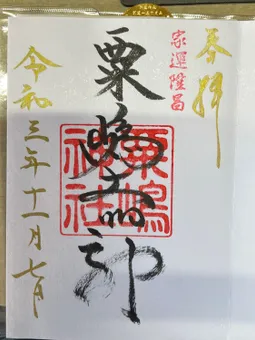 奉拝
家運隆昌
粟嶋
粟嶋
神社
令和三年十一月七日